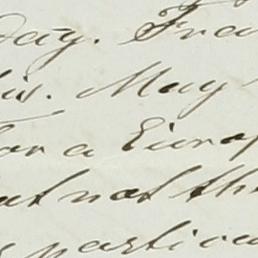 day. Fra
his. May
for a Europ
but not th
particu